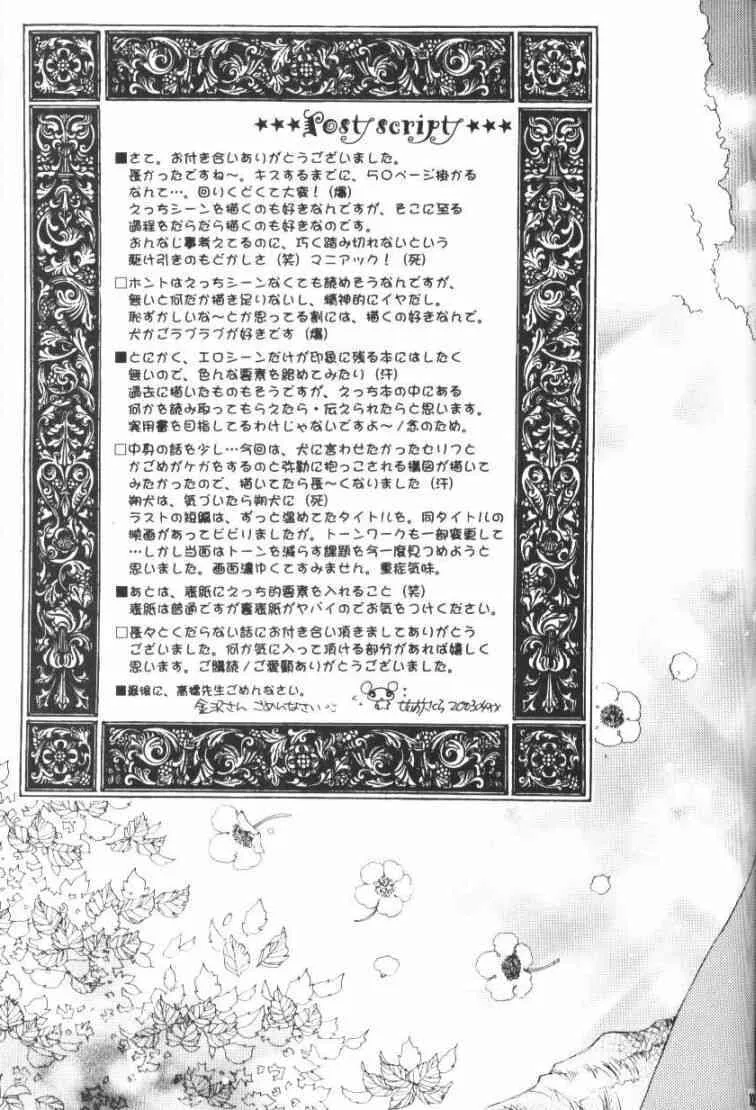 ★★★Post script★★★
■さて。お付き合いありがとうございました。
長かったですね〜。キスするまでに、50ページ掛かる
なんて…。回りくどくて大変!(爆)
えっちシーンを描くのも好きなんですが、そこに至る
過程をだらだら描くのも好きなのです。
おんなじ事考えてるのに、巧く踏み切れないという
駆け引きのもどかしさ(笑)マニアック!(死)
□ホントはえっちシーンなくても読めそうなんですが、
無いと何だか描き足りないし、精神的にイヤだし。
恥ずかしいな〜とか思ってる割には、描くの好きなんで。
犬かごラブラブが好きです(爆)
■とにかく、エロシーンだけが印象に残る本にはしたく
無いので、色んな要素を絡めてみたり(汗)
過去に描いたものもそうですが、えっち本の中にある
何かを読み取ってもらえたら・伝えられたらと思います。
実用書を目指してるわけじゃないですよ〜!念のため。
□中身の話を少し…今回は、犬に言わせたかったセリフと
かごめがケガをするのと弥勒に抱っこされる構図が描いて
みたかったので、描いてたら長〜くなりました(汗)
朔犬は、気づいたら朔犬に(死)
ラストの短編は、ずっと温めてたタイトルを。同タイトルの
映画があってビビりましたが。トーンワークも一部変更して
…しかし当面はトーンを減らす課題を今一度見つめようと
思いました。画面濃ゆくてすみません。重症気味。
■あとは、表紙にえっち的要素を入れること(笑)
表紙は普通ですが裏表紙がヤバイのでお気をつけください。
□長々とくだらない話にお付き合い頂きましてありがとう
ございました。何か気に入って頂ける部分があれば嬉しく
思います。ご購読!ご愛顧ありがとうございました。
■最後に、高橋先生ごめんなさい。
金沢さん ごめんなさい
2003